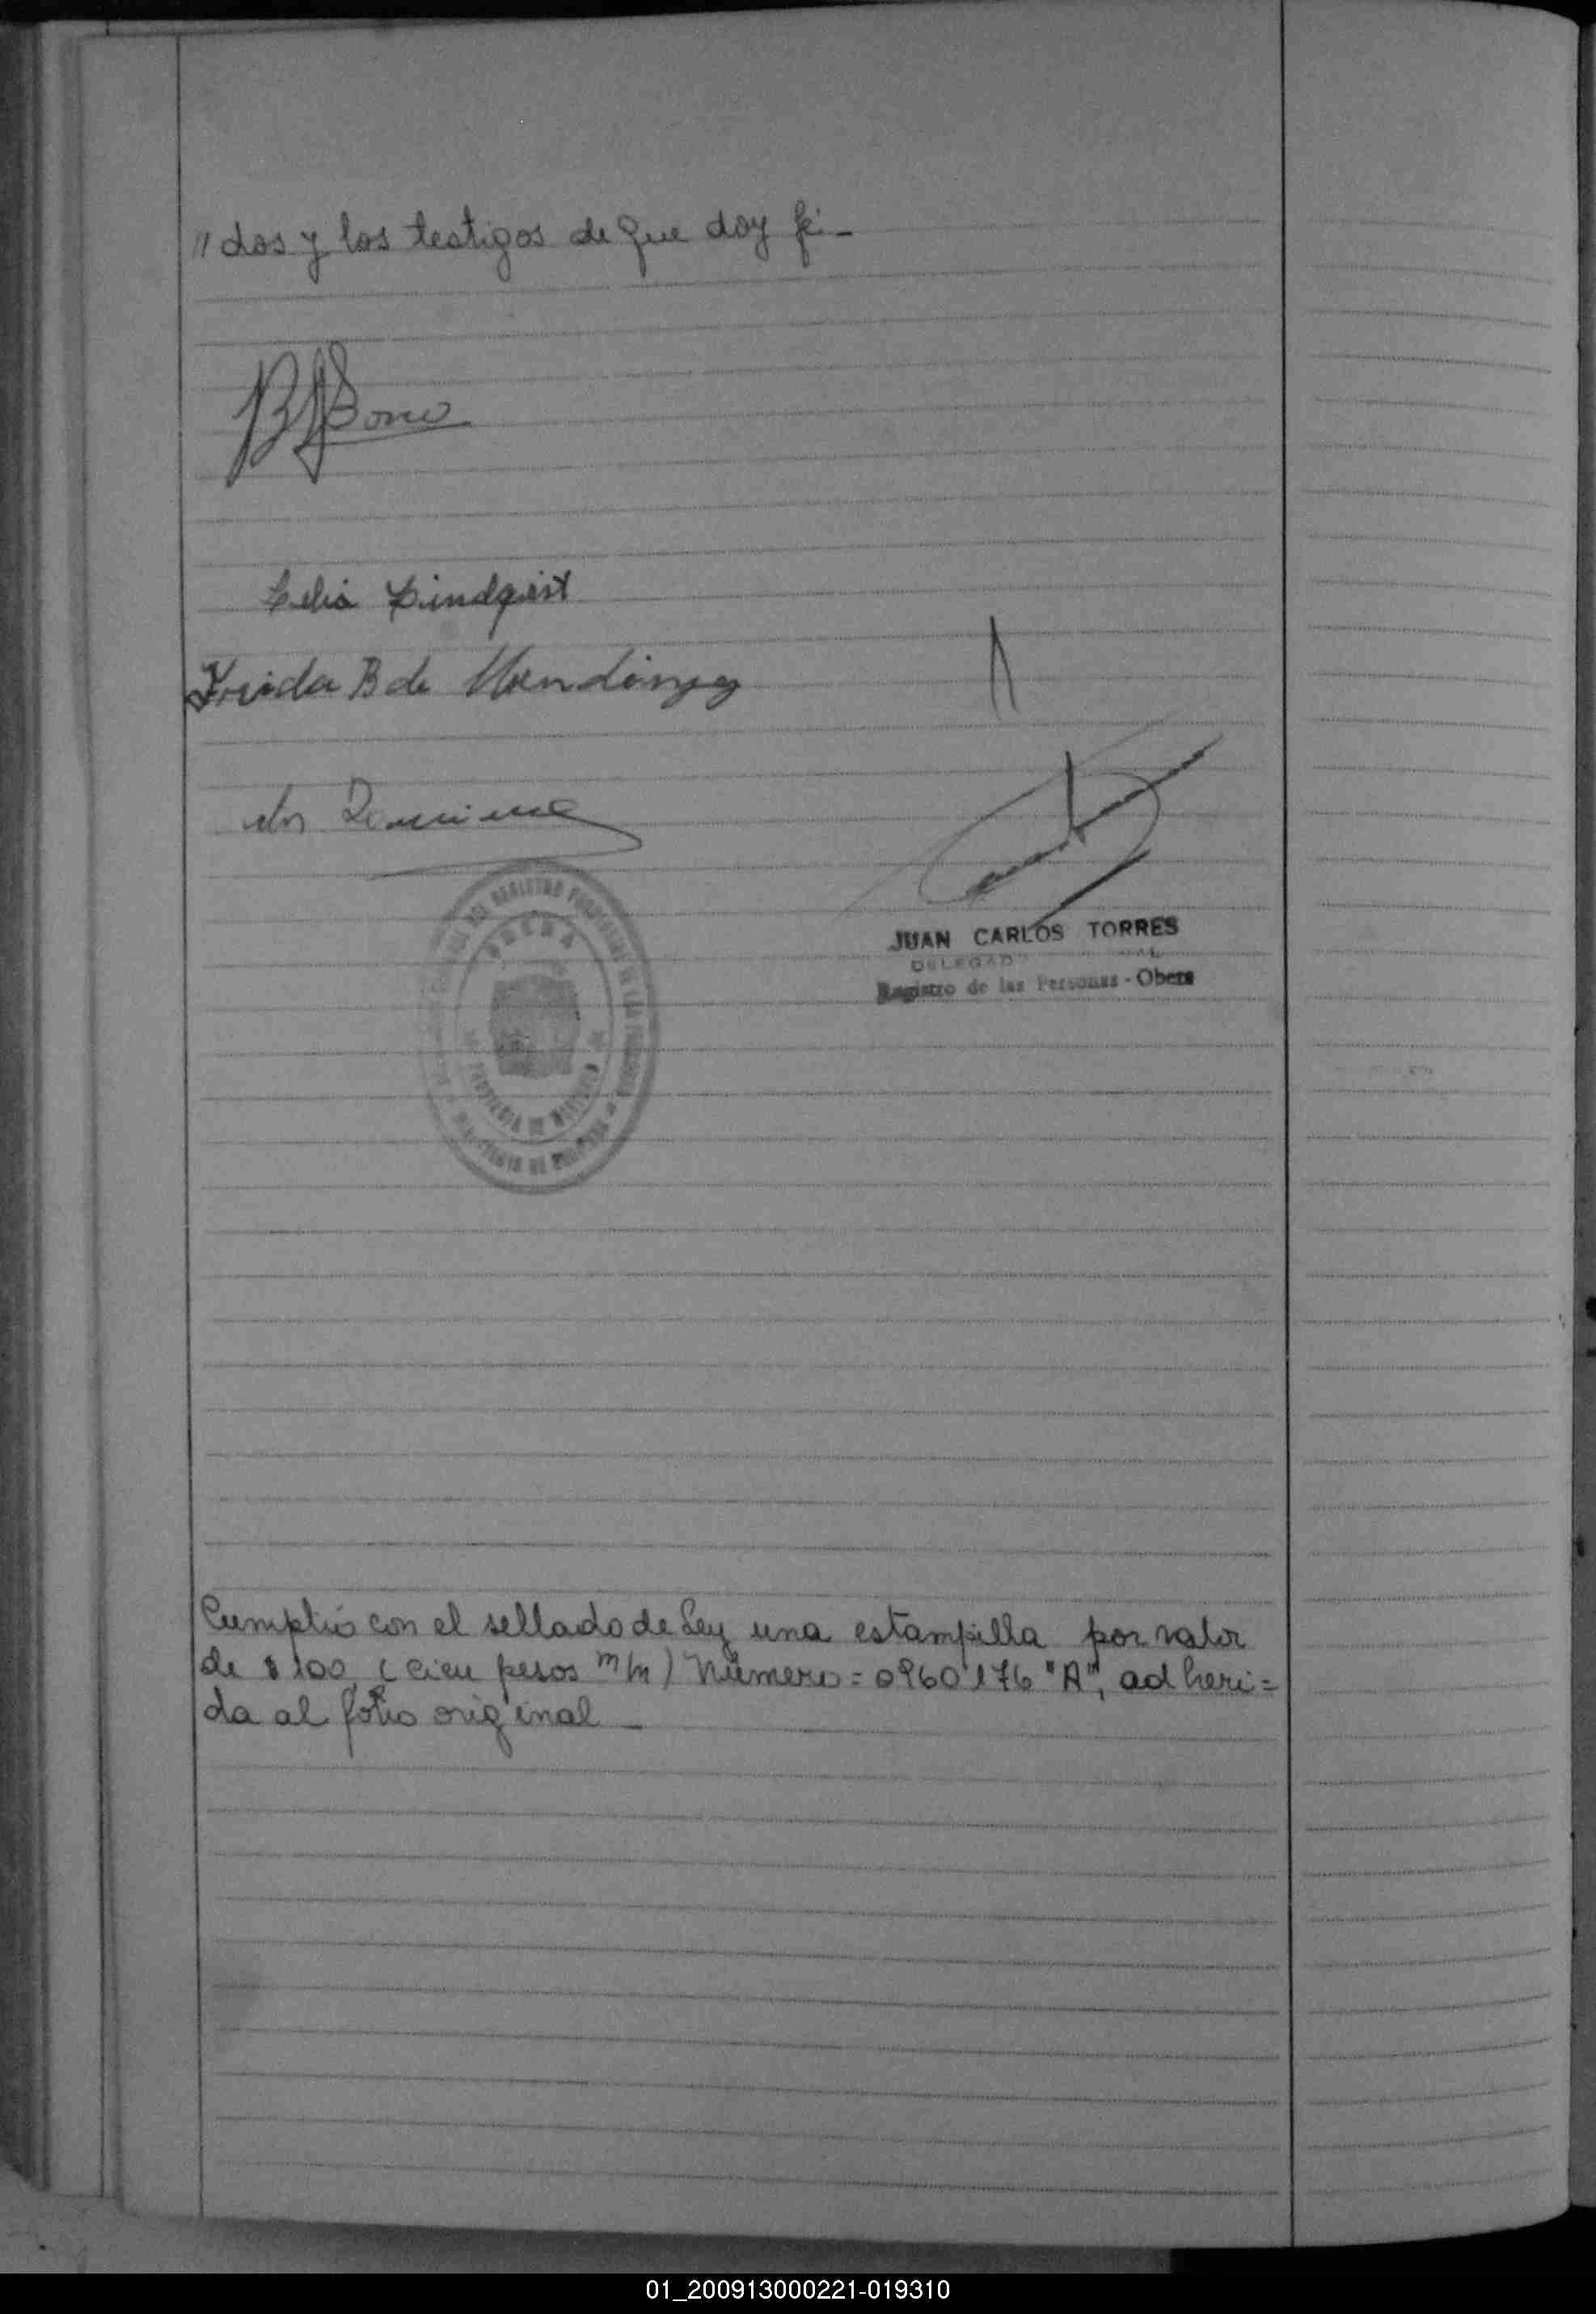 "dos y los testigos de que doy fé.-
B Bono
Celia Lindqist
Frida B de
JUAN CARLOS TORRES
DELEGADO
Registro de las Personas - Obera
OBERA
PROVINCIA DE MISIONES
Cumplió con el sellado de Ley una estampilla por valor
de $ 100, (cien pesos m/n) Número = 0960176 "A", adheri=
da al folio original -
01_200913000221-019310